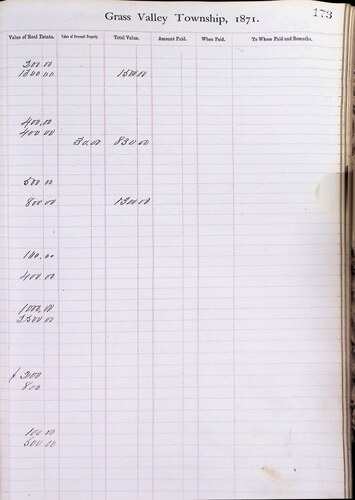 Grass Valley Township, 1871.
173
Value of Real Estate. Value of Personal Property. Total Value. Amount Paid. When Paid. To Whom Paid and Remarks.
300 00
1500 00
400 00
400 00
30 00 830 00
500 00
800 00 1300 00
100 00
400 00
1000 00
800
100 00
500 00